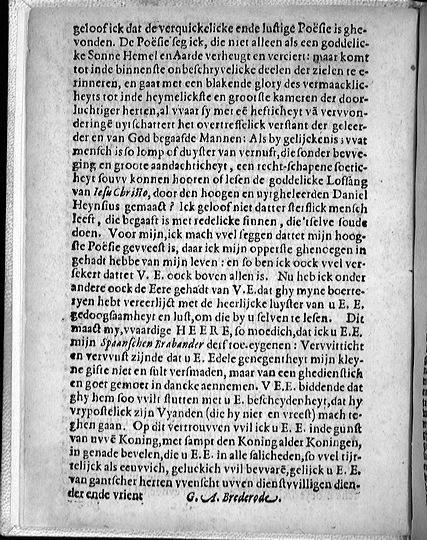 geloof ick dat de verquickelicke ende lustige Poësie is ghe-
vonden. De Poësie seg ick, die niet alleen als een goddelic-
ke Sonne Hemel en Aarde verheugt en verciert: maar komt
tot inde binnenste onbeschryvelicke deelen der zielen te e-
rinneren, en gaat met een blakende glory des vermaacklic-
heyts tot inde heymelickste en grootste kameren der door-
luchtiger herten, al vvaar sy met eē hefticheyt vā vervvon-
deringē uytschattert het overtreffelick verstant der geleer-
der en van God begaafde Mannen: Als by gelijckenis: vvat
mensch is so lomp of duyster van vernuft, die sonder bevve-
ging en groote aandachticheyt, een recht-schapene soetic-
heyt souvv konnen hooren of lesen de goddelicke Lofsang
van Iesu Christo, door den hoogen en uytgheleerden Daniel
Heynsius gemaact? Ick geloof niet datter sterflick mensch
leeft, die begaaft is met redelicke sinnen, die 'tselve soude
doen. Voor mijn, ick mach vvel seggen dattet mijn hoog-
ste Poësie gevveest is, daar ick mijn opperste ghenoegen in
gehadt hebbe van mijn leven: en so ben ick oock vvel ver-
sekert dattet V. E. oock boven allen is. Nu heb ick onder
andere oock de Eere gehadt van V. E. dat ghy myne boerte-
ryen hebt vereerlijct met de heerlijcke luyster van u E. E.
gedoogsaamheyt en lust, om die by u selven te lesen. Dit
maact my, vvaardige HEERE, so moedich, dat ick u E. E.
mijn Spaanschen Brabander derf toe-eygenen: Vervvitticht
en vervvust zijnde dat u E. Edele genegentheyt mijn kley-
ne gifte niet en sult versmaden, maar van een ghedienstich
en goet gemoet in dancke aennemen. V E. E. biddende dat
ghy hem soo vvilt stutten met u E. bescheydenheyt, dat hy
vrypostelick zijn Vyanden (die hy niet en vreest) mach te-
ghen gaan. Op dit vertrouvven vvil ick u E. E. inde gunst
van uvvē Koning, met sampt den Koning alder Koningen,
in genade bevelen, die u E. E. in alle salicheden, so vvel tijt-
telijck als eeuvvich, geluckich vvil bevvarē, gelijck u E. E.
van gantscher herten vvenscht uvven dienstvvilligen dien-
der ende vrient G. A. Brederode.